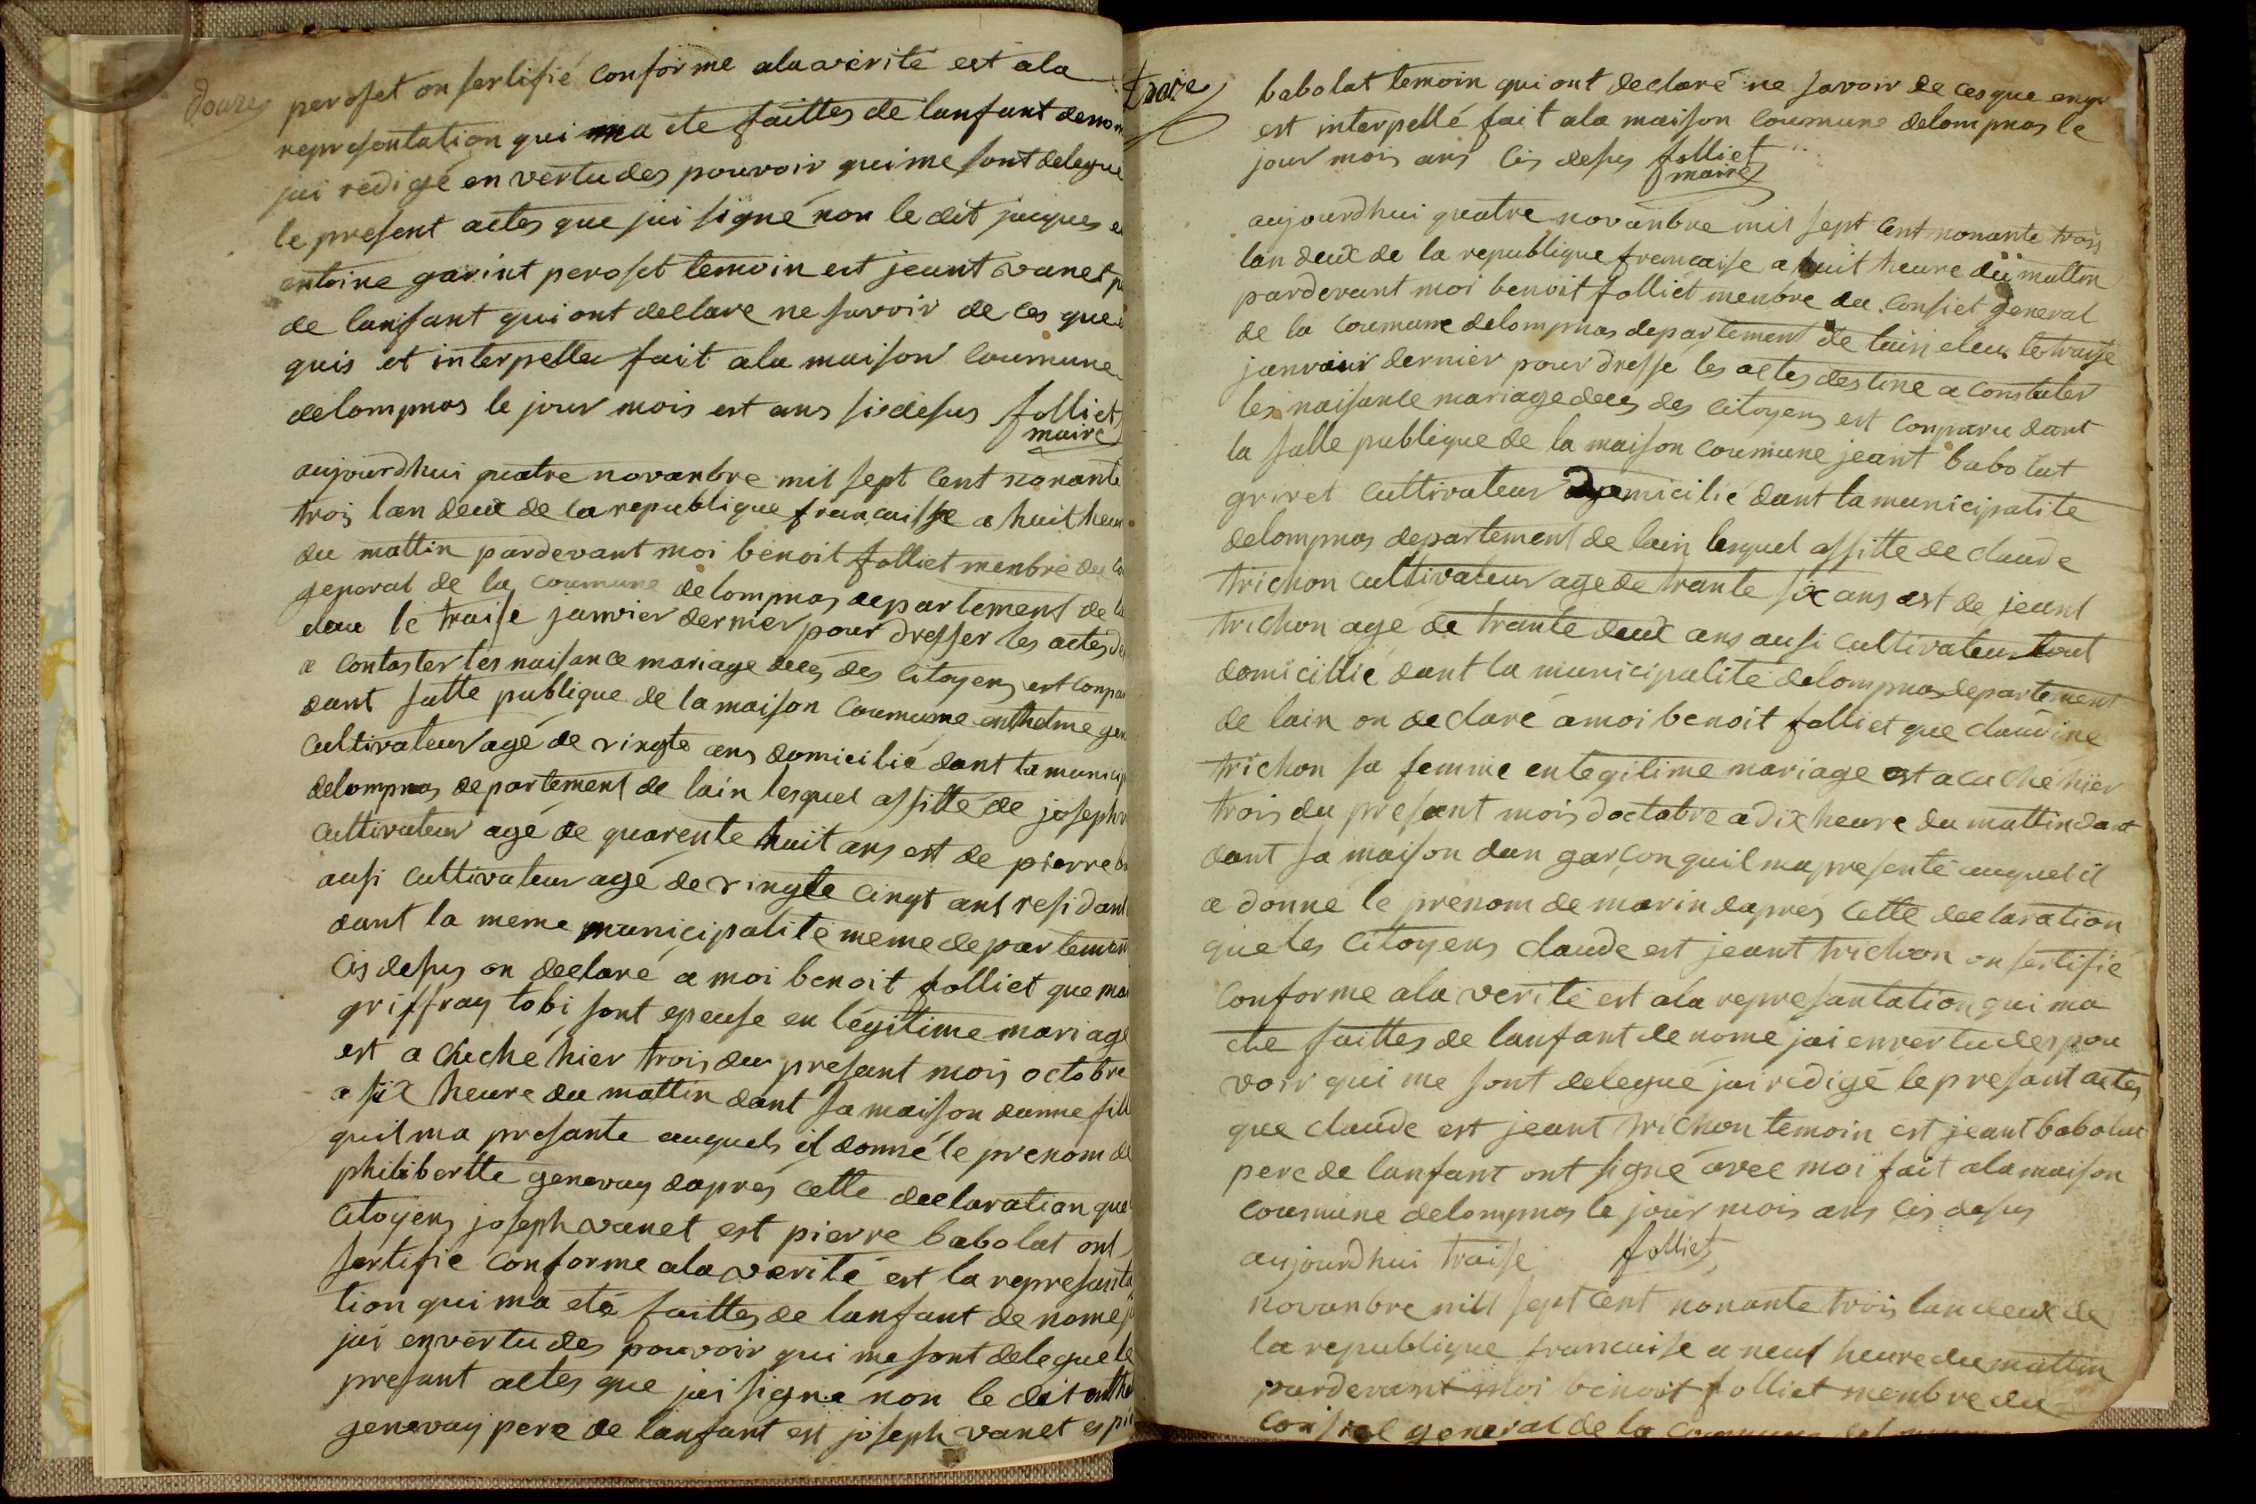 douzes
peroset on sertifié conforme alaverité est ala
representation qui ma ete faittes de lanfant denom
jai redigé en vertu des pouvoir qui me sont delegue
le present actes que jai signé non le dit jacques e
entoine garint peroset temoin est jeant vanet p
de lanfant qui ont declare ne savoir de ces que
quis et interpelle fait ala maison coumune
delompnas le jour mois est ans sidesus folliet
maire
aujourdhui quatre novanbre mil sept cent nonante
trois lan deux de la republique francaisse a huit heu
du mattin pardevant moi benoit folliet menbre du co
general de la coumune delompnas departement de l
eleu le traise janvier dernier pour dresser les actes de
a contaster les naisance mariage dees des citoyens est conpa
dant salle publique de la maison coumune enthelme gen
cultivateur agé de vingte ans domicilié dant la municip
delompnas departement de lain lesquel assitté de joseph v
cultivateur agé de quarente huit ans est de pierre b
ausi cultivateur agé de vingte cingt ant residant
dant la meme municipalité meme departement
cis desus on declaré a moi benoit folliet que ma
griffray tobi sont epeuse en légitime mariage
est a cheché hier trois du presant mois octobre
a six heure du mattin dant sa maison dunne fill
quil ma presante auquels il donné le prenom de
philibertte genevay daprés cette declaration que
citoyens joseph vanet est pierre babolat ont
sertifié conforme ala verité est la represanta
tion qui ma eté faittes de lanfant de nome j
jai envertu des pouvoir qui me sont delegue le
presant actes que jai signé non le dit enthel
genevay pere de lanfant est joseph vanet es pi
traize
babolat temoin qui ont declaré ne savoir de ces que enqr
est interpellé fait ala maison coumune delompnas le
jour mois ans cis desus folliet
maire
aujourdhui quatre novanbre mil sept cent nonante trois
lan deux de la republique francaise a huit heure du mattin
pardevant moi benoit folliet menbre du consiel general
de la coumune delompnas departement de lain eleu le traise
janvair dernier pour dressé les actes destiné a constater
les naisance mariage dees des citoyens est conparu dant
la salle publique de la maison coumune jeant babolat
grivet cultivateur domicilié dant la municipalité
delompnas departement de lain lesquel assitte de claude
trichon cultivateur age de trante six ans est de jeant
trichon agé de trante deux ans ausi cultivateur tout
domicillié dant la municipalité delompnas departement
de lain on declaré amoi benoit folliet que claudine
trichon sa femme en legitime mariage est acuché hier
trois du presant mois doctobre a dix heure du mattin dant
dant sa maison dun garçon quil ma presenté auquel il
a donné le prenom de marin daprés cette declaration
que les citoyens claude est jeant trichon on sertifié
conforme ala verité est ala represantation qui ma
ete faittes de lanfant de nome jai envertu des pou
voir qui me sont delegué jai redigé le presant actes
que claude est jeant trichon temoin est jeant babolat
pere de lanfant ont signé avec moi fait ala maison
coumune delompnas le jour mois ans cis desus
aujourdhui traise folliet
novanbre mill sept cent nonante trois lan deux de
la republique francaise a neuf heure du mattin
pardevant moi benoit folliet menbre du
consiel general de la coumune